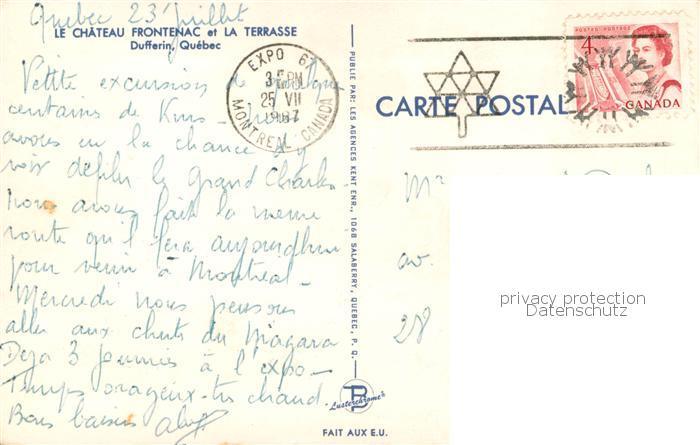 Quebec 23 juillet
LE CHÂTEAU FRONTENAC et LA TERRASSE
Dufferin, Québec
Petite excursion de quelque
centaines de Kms - nous
avons eu la chance d'y
voir défiler le grand Charles -
nous avons fait la meme
route qu'il fera aujourdhui
pour venir à Montreal -
Mercredi nous pensons
aller aux chutes du Niagara
Deja 3 journées à l'expo -
Temps orageux - très chaud -
Bons baisers
EXPO 67
3 PM
25 VII
1967
MONTREAL CANADA
PUBLIÉ PAR: LES AGENCES KENT ENR., 1068 SALABERRY, QUEBEC, P. Q.
Lusterchrome
FAIT AUX E.U.
CARTE POSTALE
4
POSTES POSTAGE
CANADA
Mr
av.
28
privacy protection
Datenschutz